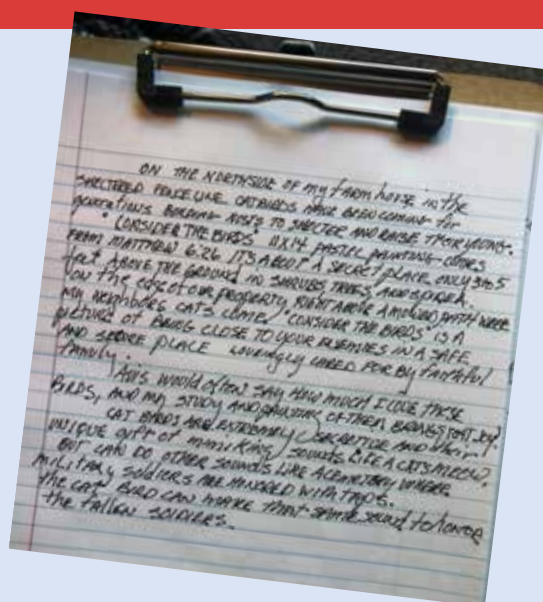 ON THE NORTHSIDE OF my farm house in the
SHELTERED FENCE LINE CATBIRDS HAVE BEEN COMING for
generations BUILDING NESTS TO SHELTER AND RAISE THEIR YOUNG.
"CONSIDER THE BIRDS" 11X14 PASTEL PAINTING - COMES
FROM MATTHEW 6:26 ITS ABOUT A SECRET PLACE ONLY 3 to 5
feet ABOVE THE GROUND IN SHRUBS TREES AND
on the edge of our PROPERTY RIGHT ABOVE A MOWED PATH WHERE
my neighbors CATS COME. "CONSIDER THE BIRDS" IS A
picture of BEING CLOSE TO YOUR ENEMIES IN A SAFE
AND SECURE PLACE lovingly CARED FOR BY faithful
family.
would often SAY HOW MUCH I LOVE THESE
BIRDS, AND my STUDY AND PAINTING OF THEM BRINGS JOY.
CAT BIRDS ARE EXTREMELY SECRETIVE AND their
UNIQUE gift of mimiking SOUNDS LIKE A CATS MEOW.
BUT CAN DO OTHER SOUNDS LIKE A CEMETERY WHERE
MILITARY SOLDIERS ARE HONORED WITH TAPS.
the CAT BIRD CAN MAKE THAT SAME sound to honor
the fallen SOLDIERS.